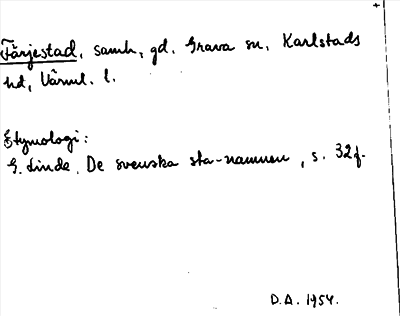 Färjestad, samh., gd. Grava sn, Karlstads
hd, Värml. l.
Etymologi:
G. Linde, De svenska sta-namnen, s. 32f.
D.A. 1954.